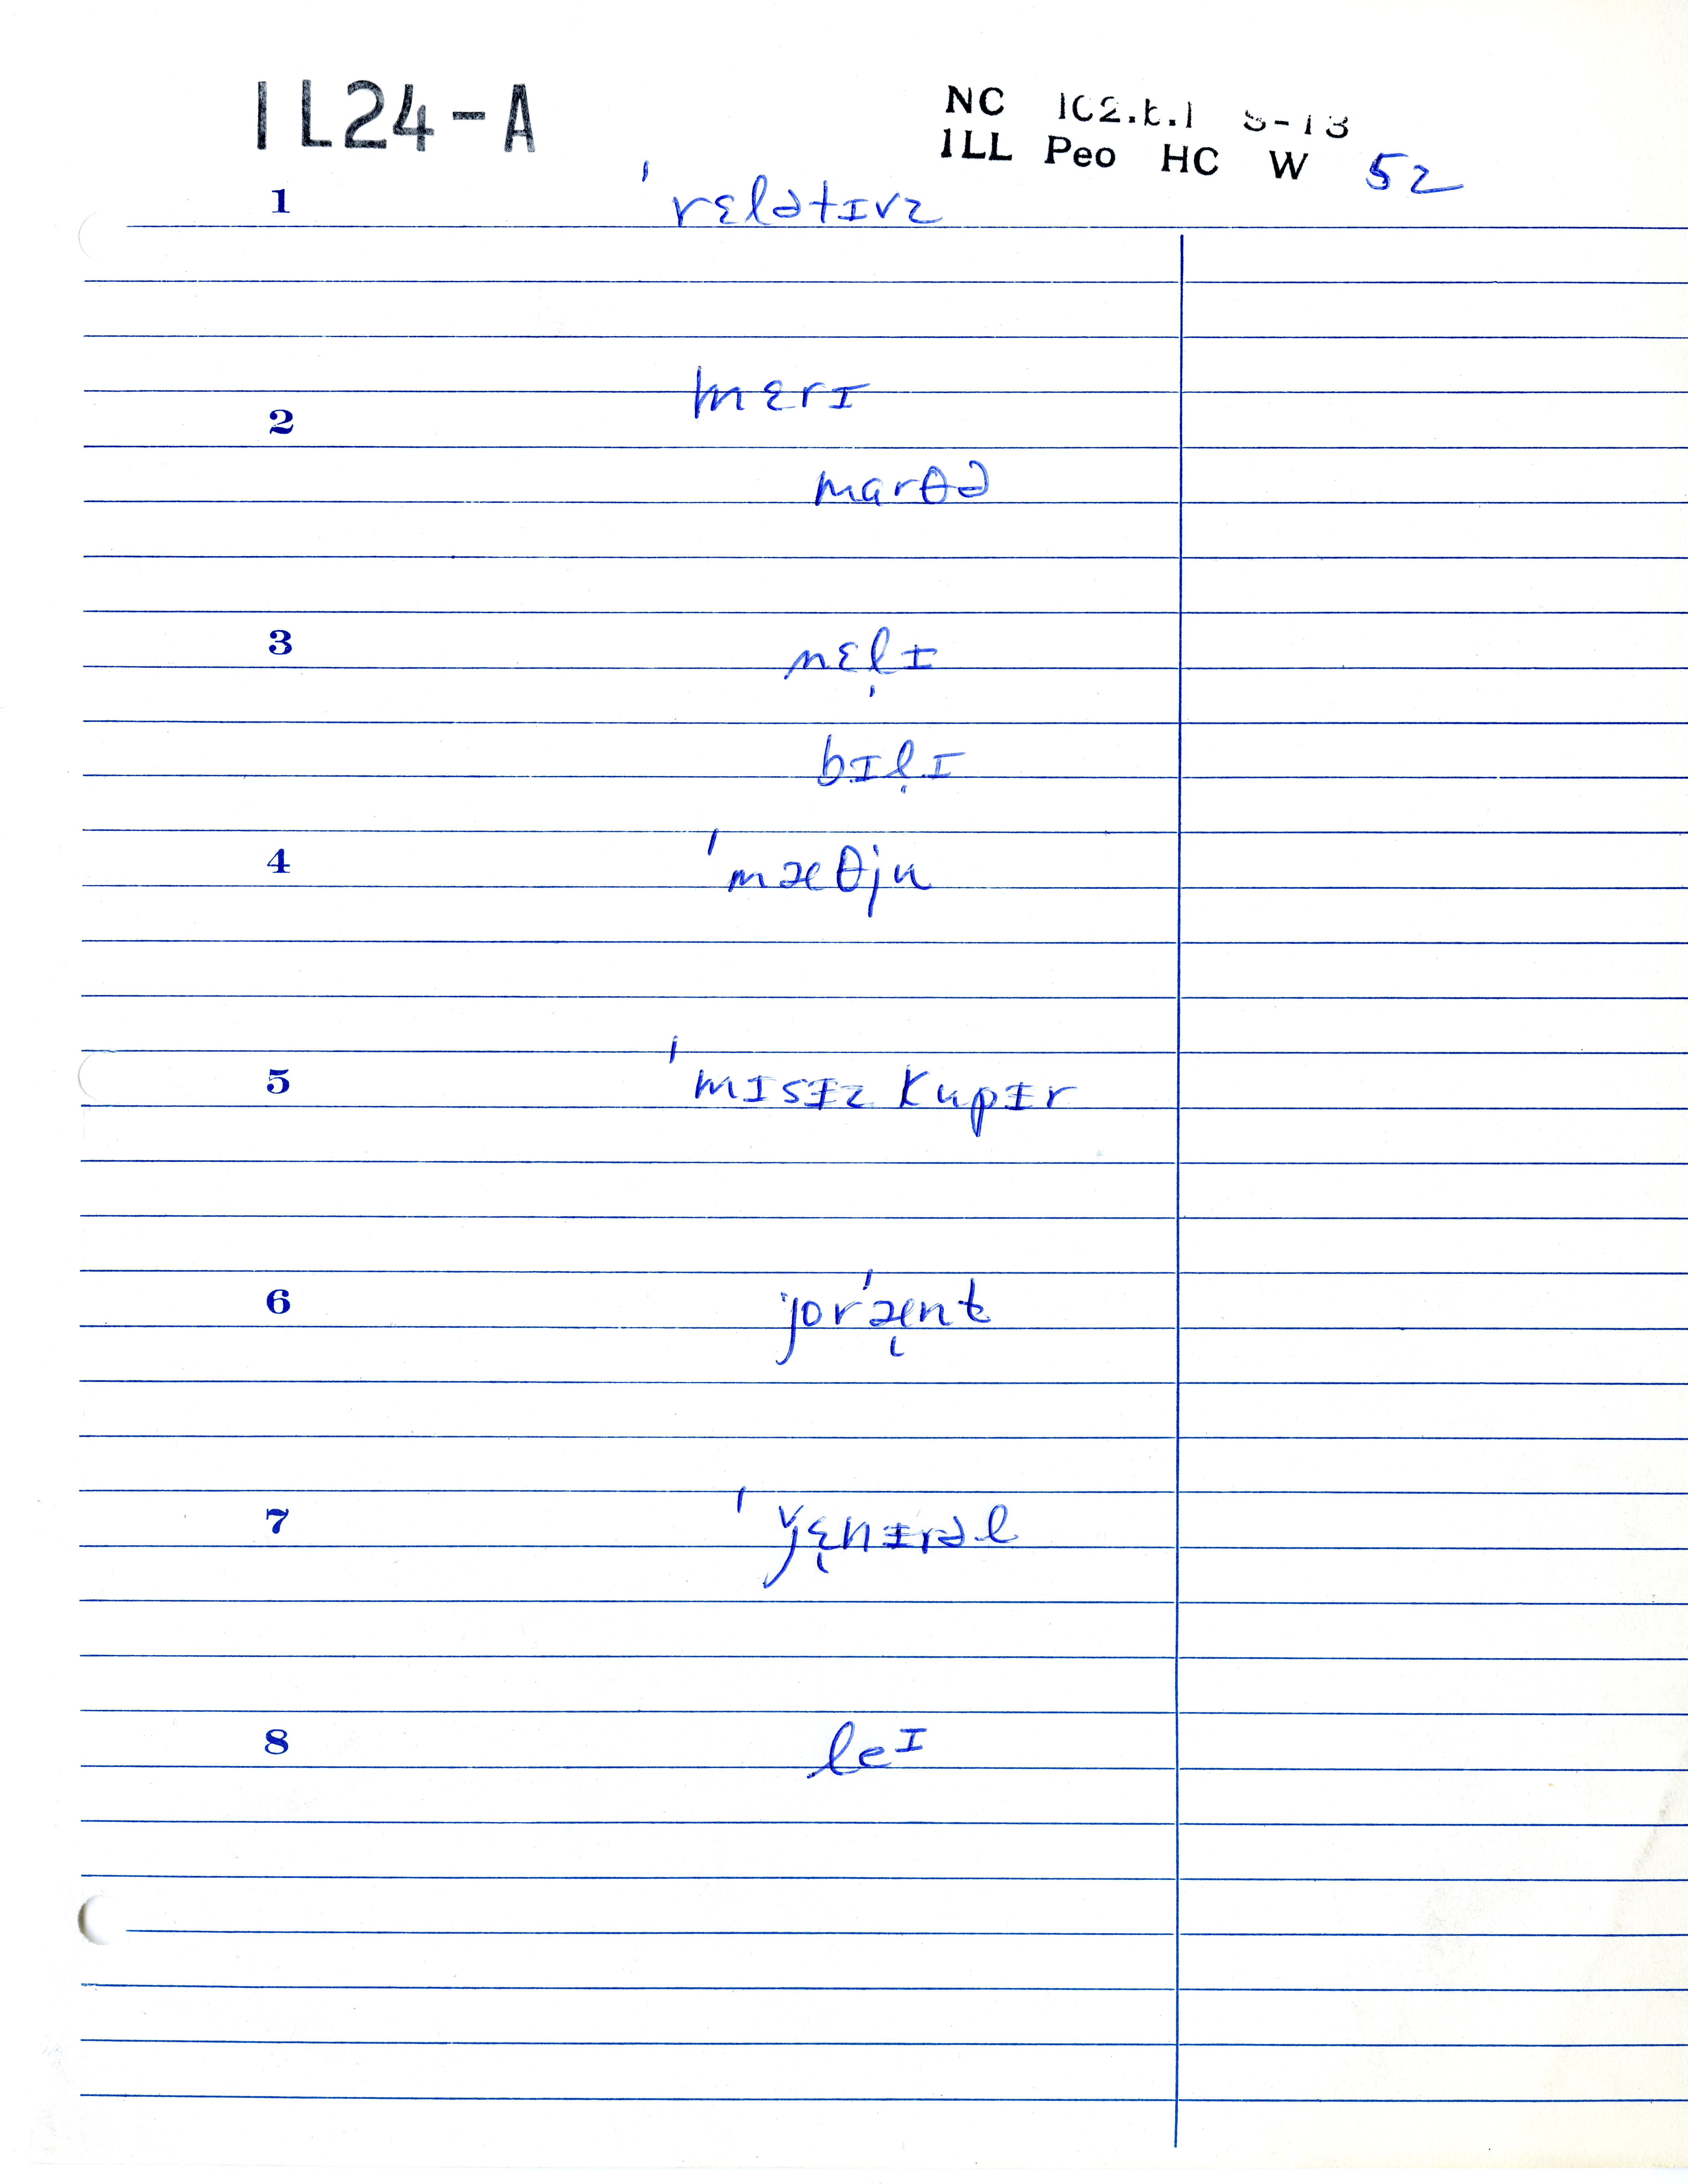 IL24-A
NC 1C2.b.1 S-13
ILL Peo HC W 52
1 ˈrɛlətɪvz
2 mɛrɪ
marθə
3 nɛl̩ɪ
bɪl̩ɪ
4 ˈmæθju
5 ˈmɪsɪz kupɪr
6 jorˈænt
7 ˈǰɛnɪrəl
8 leᴵ